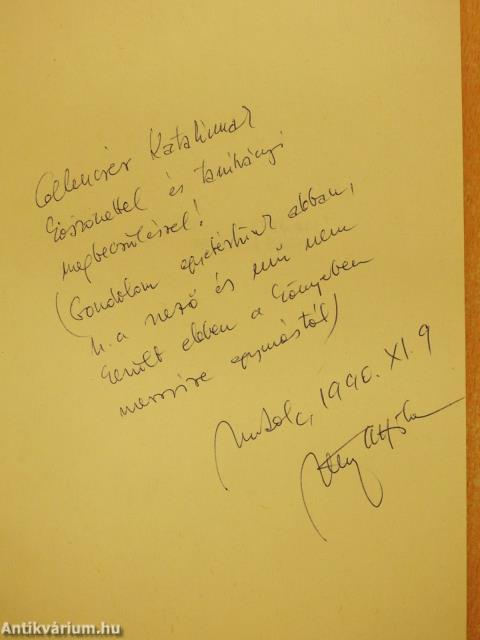 Clementser Katalinnak
köszönettel és tanítványi
megbecsüléssel!
(Gondolom egyetértünk abban,
h. a néző és mű nem
került ebben a könyvben
messzire egymástól)
Miskolc, 1990. XI. 9
Attila
Antikvárium.hu